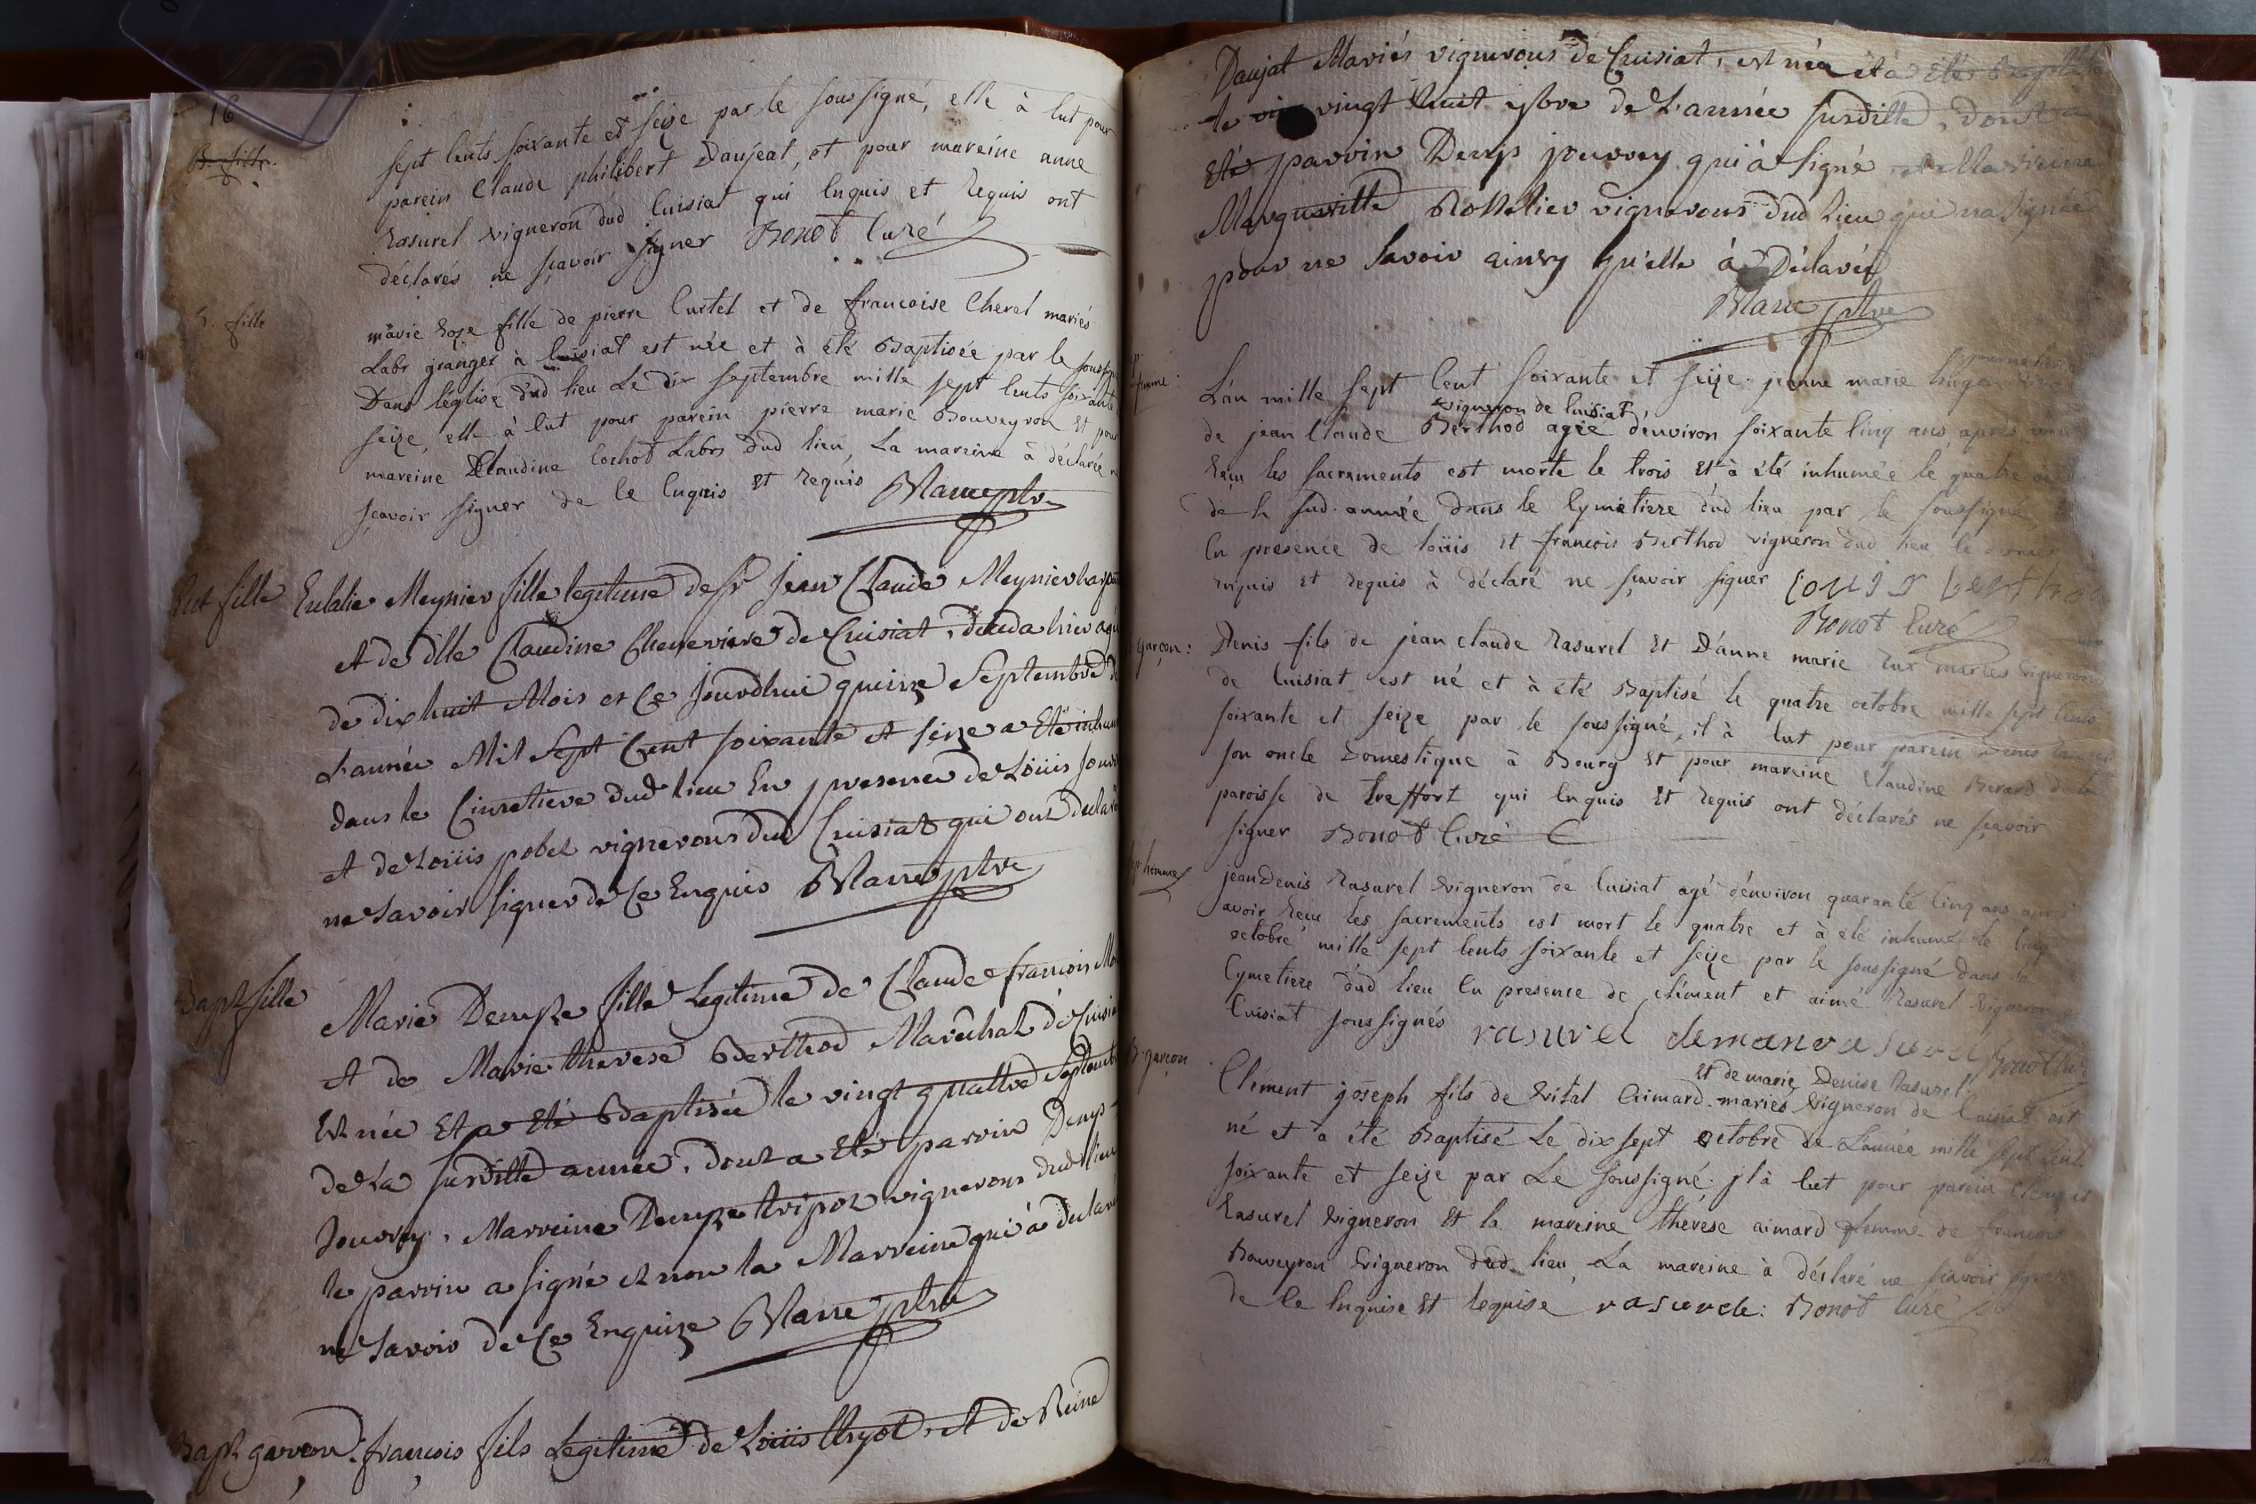 16
B. fille.
sept cents soixante et seize par le soussigné, elle à eut pour
parein Claude philibert Daujeat, et pour mareine anne
Rasurel vigneron dud Cuisiat qui enquis et requis ont
déclarés ne sçavoir signer Bonot Curé
B. fille
marie Roze fille de pierre Curtet et de francoise Cherel mariés
Labr granger à Cuisiat est née et à été Baptisée par le soussigné
Dans l'eglise dud lieu Le dix septembre mille sept cents soixante
seize, elle à eut pour parein pierre marie Bouveyron et pour
mareine Claudine Cochot Labrs dud lieu, La mareine à déclarée ne
sçavoir signer de ce enquis et requis Marre ptre
Ent fille Eulalie Meynier fille legitime de Sr Jean Claude Meynier
et de dlle Claudine Chenevière de Cuisiat, hier agée
de dix huit Mois et Ce Jourdhui quinze Septembre de
L'année Mil Sept Cent soixante et seize a Eté inhumée
dans le Cimetiere dud lieu En presence de Loüis Jouvrey
et de Loüis pobel vignerons dud Cuisiat qui ont declaré
ne savoir signer de Ce Enquis Marre ptre
Bapt fille Marie Denyze fille Legitime de Claude francois
et de Marie therese Berthod Maréchal de Cuisiat
Est née Et a Eté Baptisée le vingt quattre Septembre
de La susditte année, dont a Eté parrin Denys
Jouvrey, Marreine Denyze tripoz vignerons dud lieu
le parrin a signé et non la Marreine qui à declaré
ne savoir de Ce Enquize Marre ptre
Bapt garçon. françois fils Legitime de Loüis et de Reine
Daujat Mariés vignerons de Cuisiat, est née et a été Baptisé
le vingt huit 7bre de L'année susditte, dont a
Eté parrin Denys jouvrey qui à signé et
Margueritte Rollelier vignerons dud Lieu qui na signée
pour ne savoir ainsy qu'elle à Déclaré
Marre ptre
femme. L'an mille sept cent soixante et seize jeanne marie
vigneron de Cuisiat
de jean Claude Berthod agée d'environ soixante cinq ans après avoir
reçu les sacrements est morte le trois et à été inhumée le quatre
de la sud. année dans le Cymetiere dud lieu par le soussigné
En presence de loüis et francois Berthod vigneron dud lieu, le dernier
enquis et requis à déclaré ne sçavoir signer Louis berthod
Bonot Curé
garçon: Denis fils de jean claude Rasurel et D'anne marie Rux mariés vignerons
de Cuisiat est né et à été Baptisé le quatre octobre mille sept cents
soixante et seize par le soussigné, il à eut pour parein Denis
son oncle Domestique à Bourg et pour mareine Claudine Berard de la
paroisse de treffort qui enquis et requis ont déclarés ne sçavoir
signer Bonot Curé
homme jean Denis Rasurel vigneron de Cuisiat agé d'environ quarante cinq ans après
avoir reçu les sacrements est mort le quatre et à été inhumé le cinq
octobre mille sept cents soixante et seize par le soussigné dans le
Cymetiere dud lieu En presence de clément et aimé Rasurel vignerons
Cuisiat soussignés rasurel
B. garçon
et de marie Denise Rasurel
Clément joseph fils de vital Aimard mariés vigneron de Cuisiat est
né et à été Baptisé Le dix sept octobre de L'année mille sept cent
soixante et seize par Le soussigné. jl à eut pour parein Clément
Rasurel vigneron et la mareine thérèse aimard femme de francois
Bouveyron vigneron dud lieu, La mareine à déclaré ne sçavoir signer
de ce enquise et requise rasurel: Bonot Curé